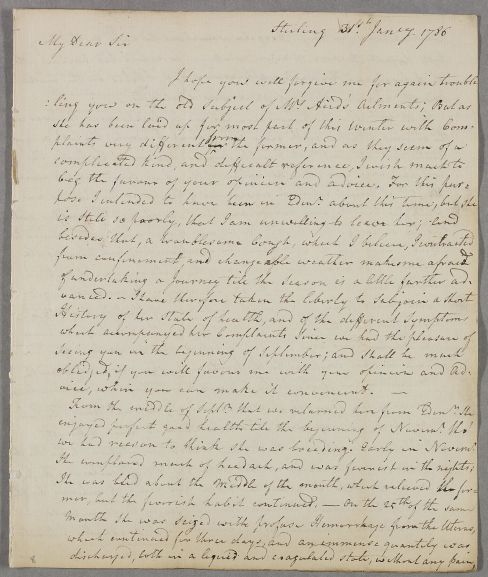 Stirling 31st Jany 1786
My Dear Sir
I hope you will forgive me for again troub-
:ling you on the old subject of Mrs Aird's ailments; But as
she has been laid up for most part of this winter with Com-
plaints very different from the former, and as they seem of a
complicated kind, and difficult reference, I wish much to
beg the favour of your opinion and advice. For this pur-
pose I intended to have been in Edinr. about this time, but she
is still so poorly, that I am unwilling to leave her; and
besides that, a troublesome Cough, which I believe, I contracted
from confinement, and changeable weather makes me afraid
of undertaking a Journey till the season is a little farther ad-
vanced. I have therefore taken the liberty to subjoin a short
History of her State of health, and of the different Symptoms
which accompanyed her Complaints, since we had the pleasure of
seeing you in the beginning of September; and shall be much
obliged, if you will favour me with your opinion and Ad-
vice, when you can make it convenient. —
From the middle of Septr. that we returned here from Edinr. she
enjoyed perfect good health till the beginning of Novemr. tho'
we had reason to think she was breeding. Early in Novemr.
She complained much of headach, and was feverish in the nights;
She was bled about the middle of the month, which relieved the for-
mer, but the feverish habit continued. — On the 28th of the same
Month she was seized with profuse Hemorrhage from the Uterus,
which continued for three days, and an immense quantity was
discharged, both in a liquid and coagulated state, without any pain,